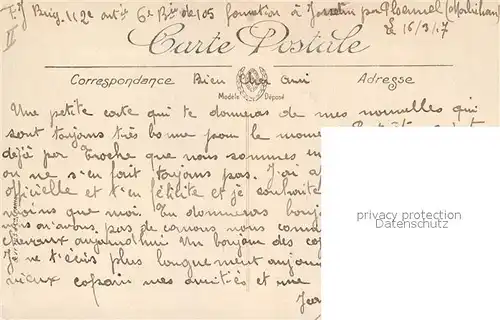 Brig. 112e art ie 6e Bie de 105 formation à Josselin par Ploermel (Morbihan)
le 16/3/17
II
Carte Postale
Correspondance Bien Cher ami Adresse
Modèle Déposé
Une petite carte qui te donneras de mes nouvelles qui
sont toujours très bonne pour le mome
déjà par Troche que nous sommes en
on ne s'en fait toujours pas. J'ai a
officielle et t'en félicite et je souhaite
moins que moi. Tu donneras bonj
nous n'avons pas de canons nous
chevaux aujourd'hui Un bonjour des co
Je ne t'écris plus longuement aujou
vieux copain mes amitiés et une
privacy protection
Datenschutz